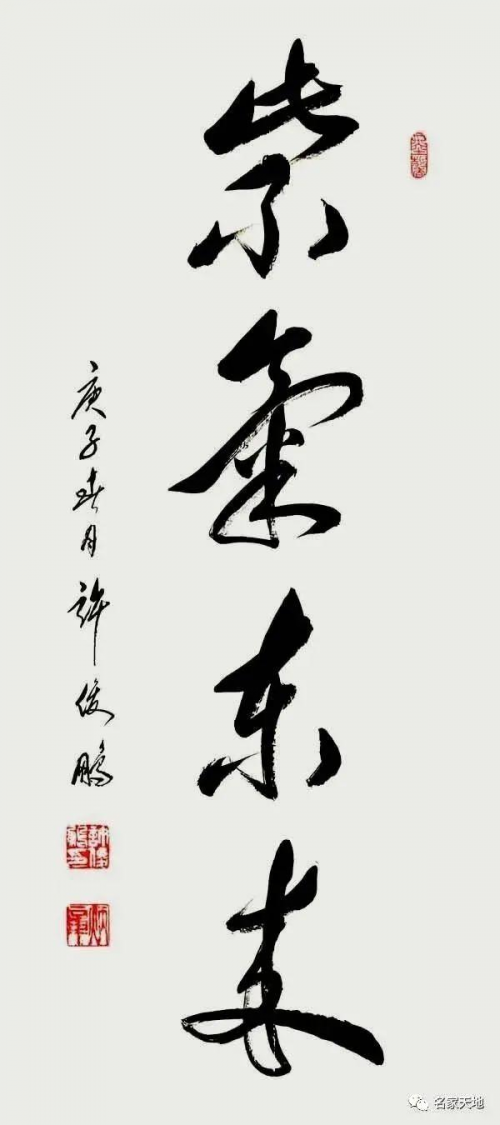 紫氣东来
庚子春月 许俊鹏
名家天地